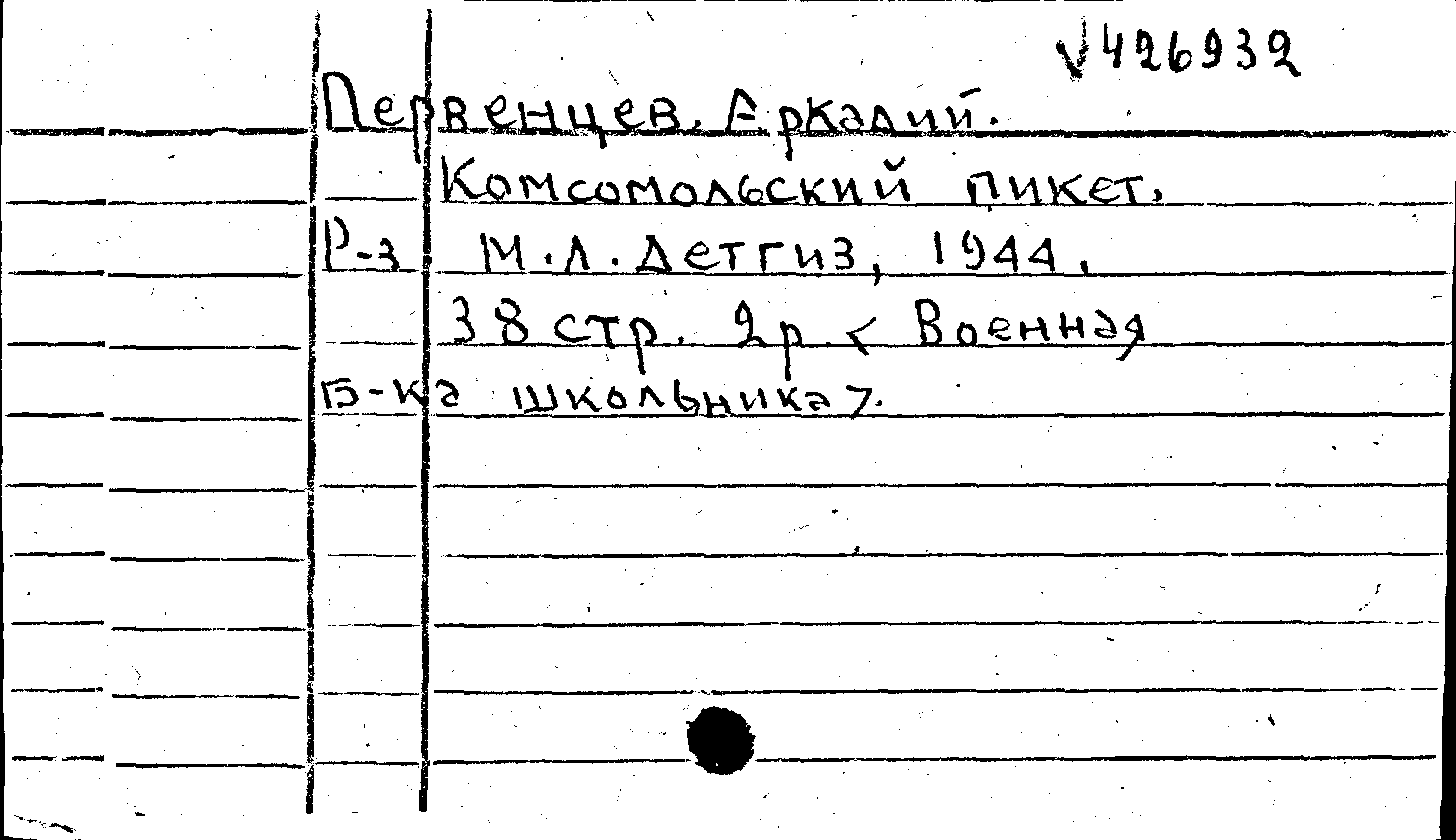 √426932
Первенцев. Аркадий.
Комсомольский пикет.
Р-з М.Л. Детгиз, 1944.
38 стр. 2р. < Военная
Б-ка школьника >.